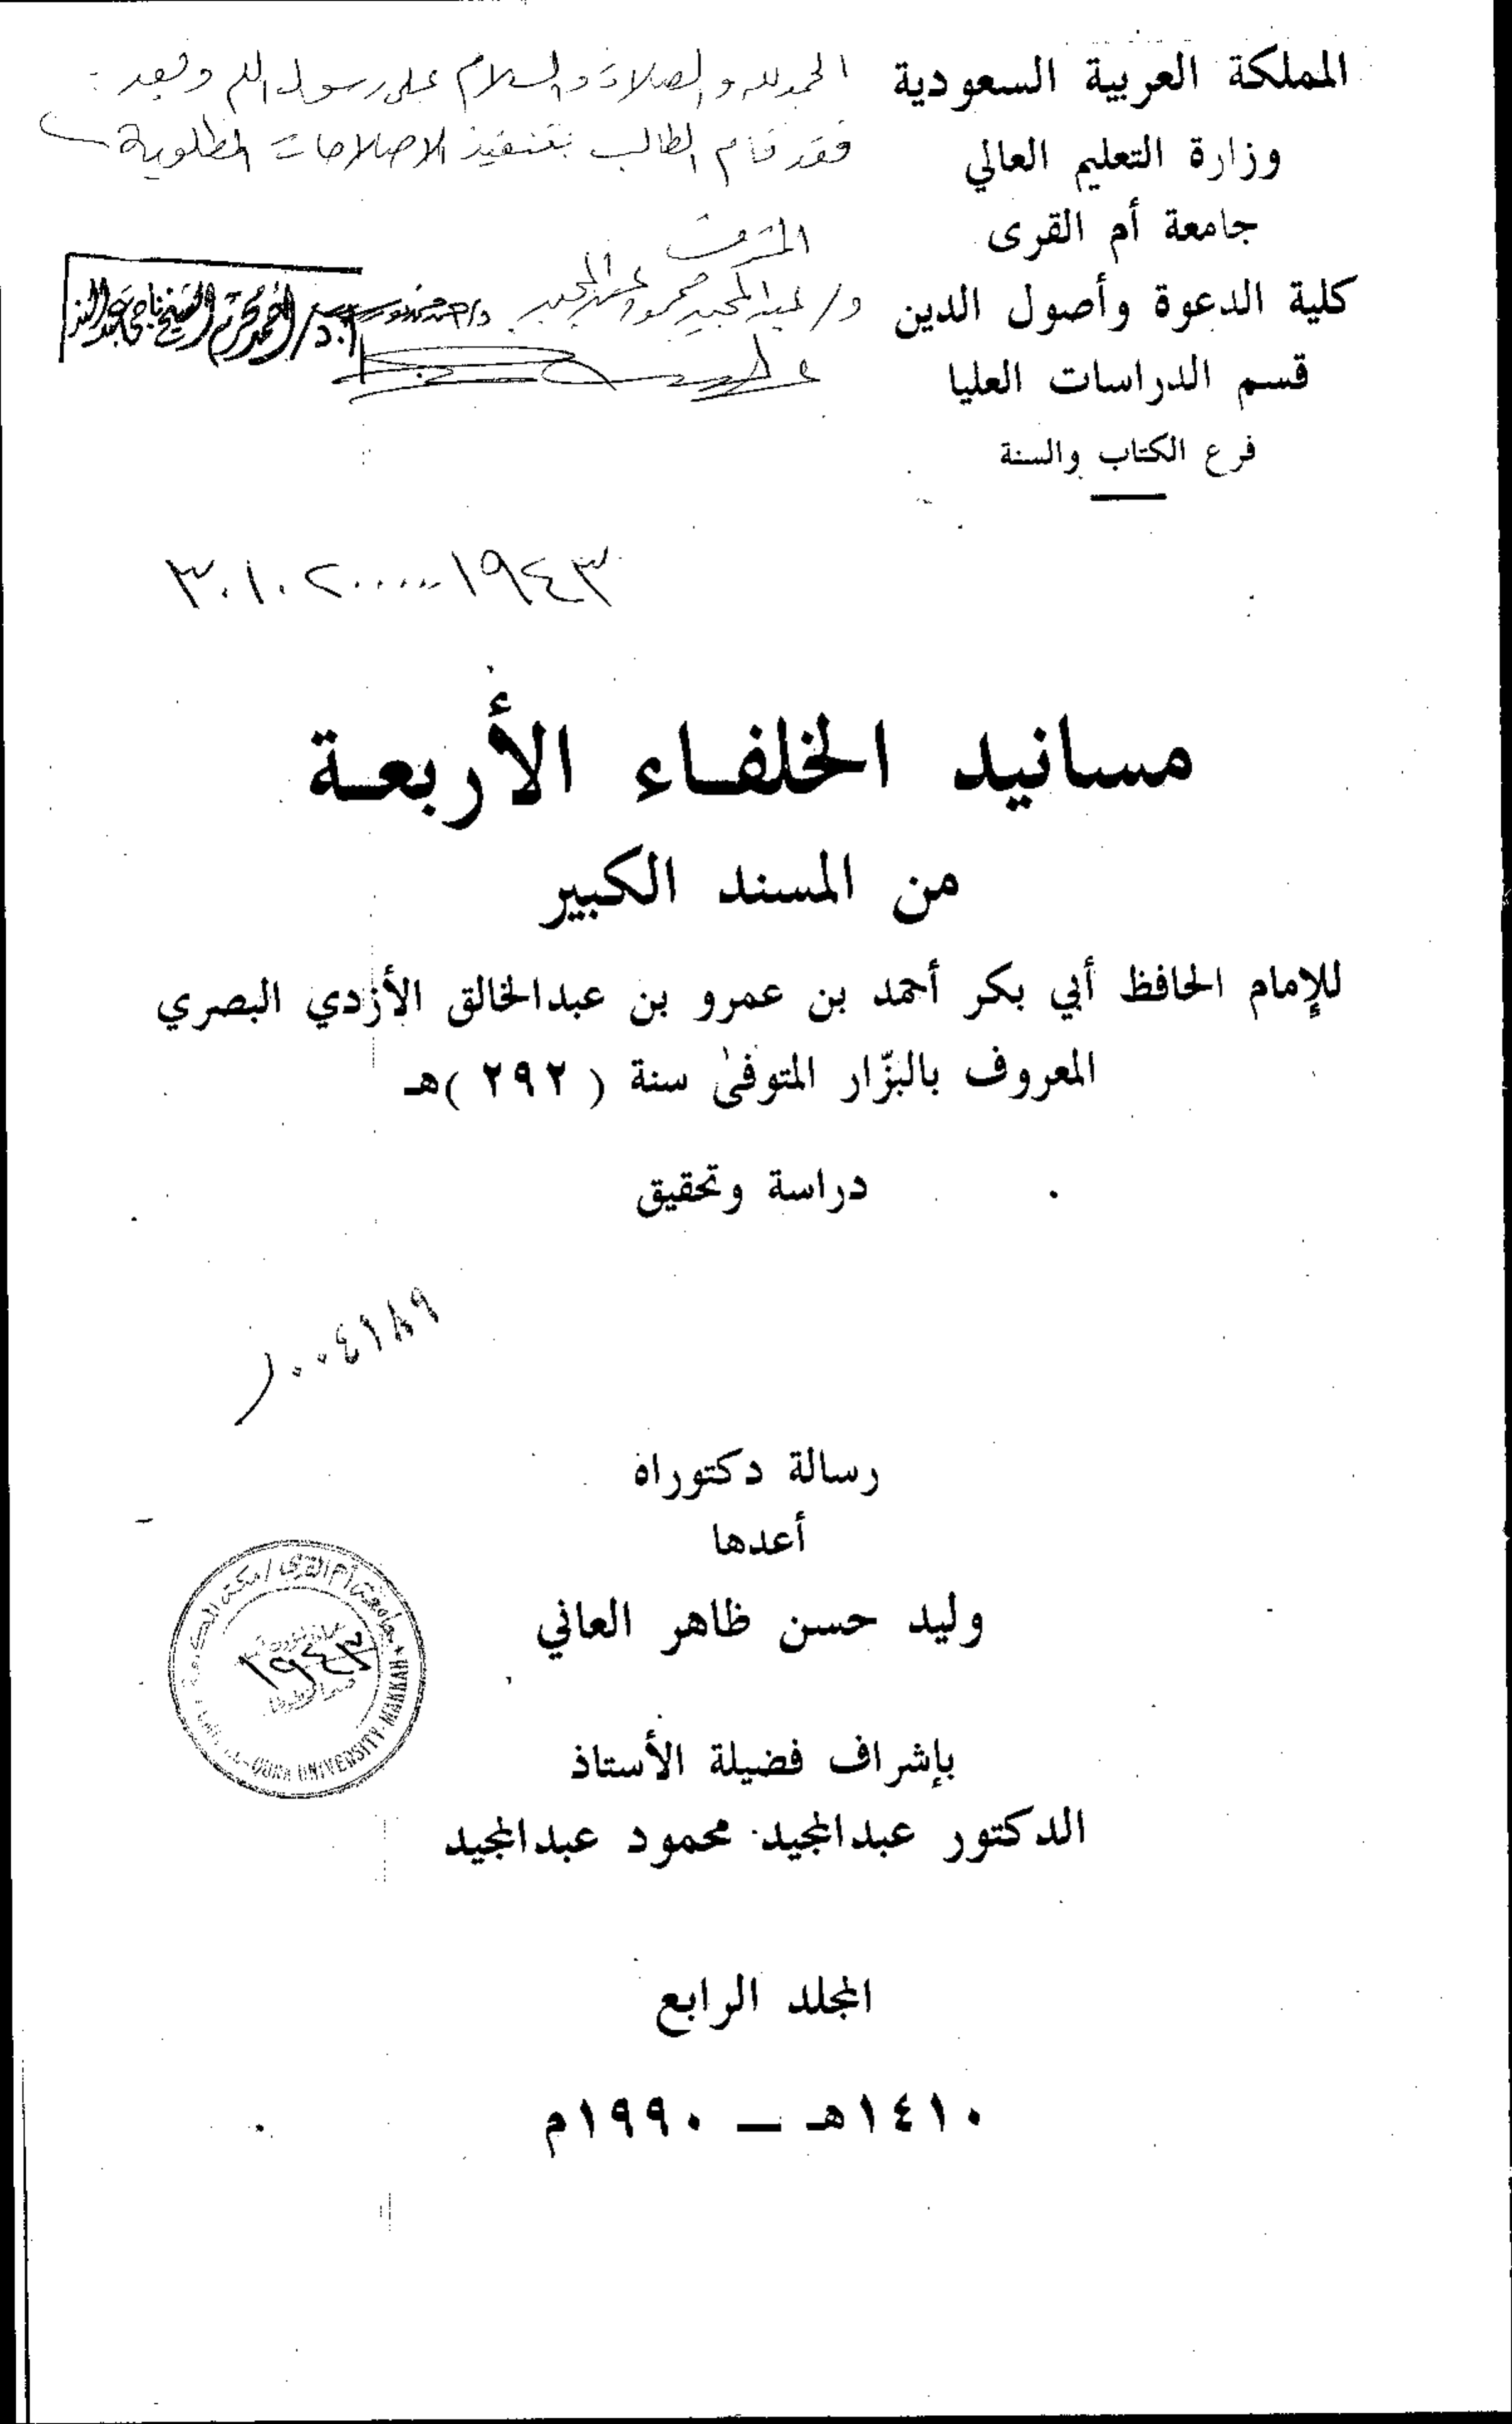 المملكة العربية السعودية
وزارة التعليم العالي
جامعة أم القرى
كلية الدعوة وأصول الدين
قسم الدراسات العليا
فرع الكتاب والسنة
الحمد لله والصلاة والسلام على رسول الله وبعد :
فقد قام الطالب بتنفيذ الاصلاحات المطلوبة
المشرف
د/ عبد المجيد محمود عبد المجيد
٣٠١٠٢٠٠٠٠٠١٩٤٣
مسانيد الخلفاء الأربعة
من المسند الكبير
للإمام الحافظ أبي بكر أحمد بن عمرو بن عبدالخالق الأزدي البصري
المعروف بالبزّار المتوفى سنة ( ٢٩٢ )هـ
دراسة وتحقيق
٠٠٤١٨٩
رسالة دكتوراه
أعدها
وليد حسن ظاهر العاني
جامعة أم القرى / مكة
١٩٤٣
UNIVERSITY MAKKAH
بإشراف فضيلة الأستاذ
الدكتور عبدالمجيد محمود عبدالمجيد
المجلد الرابع
١٤١٠هـ — ١٩٩٠م